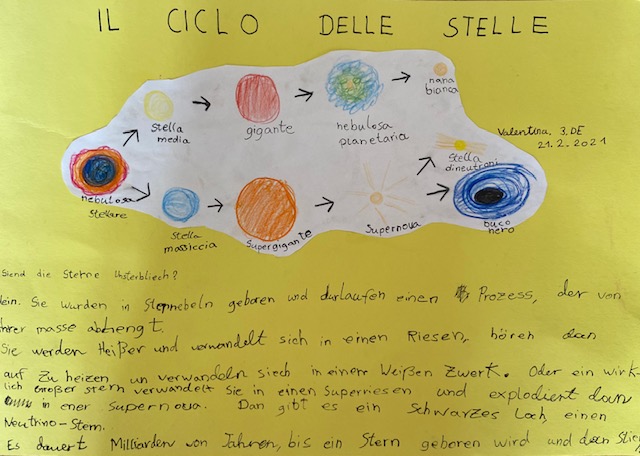 IL CICLO DELLE STELLE
nana bianca
Stella media
gigante
nebulosa planetaria
Valentina. 3. DE
21.2.2021
Stella dineutroni
nebulosa stellare
Stella massiccia
Supergigante
Supernova
buco nero
Siend die Sterne Unsterbliech?
lein. Sie wurden in Sternnebeln geboren und durlaufen einen Prozess, der von
ihrer masse abhengt.
Sie werden Heißer und verwandelt sich in einen Riesen, hören dan
auf Zu heizen un verwandeln siech in einem Weißen Zwerk. Oder ein wirk-
lich Großer stern verwandelt Sie in einen Superriesen und explodient dan
in ener Supernova. Dan gibt es ein Schwarzes Loch, einen
Neutrino-Stern.
Es dauert Milliarden von Jahren, bis ein Stern geboren wird und dan